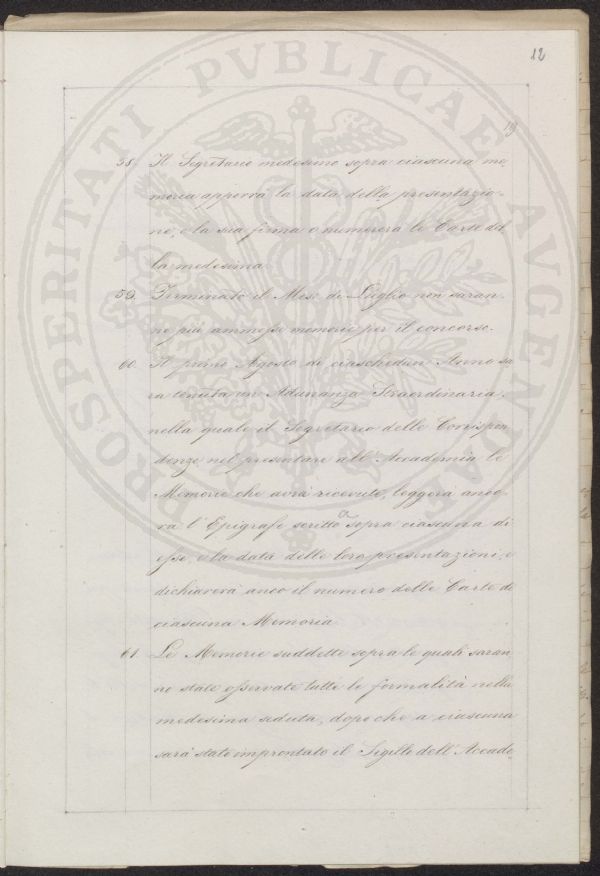 12
PROSPERITATI PVBLICAE AVGENDAE
58. Il Segretario medesimo sopra ciascuna me
moria apporrà la data della presentazio-
ne, e la sua firma e numererà le Carte del
la medesima.
59. Terminato il Mese di Luglio non saran-
no più ammesse memorie per il concorso.
60. Il primo Agosto di ciaschedun Anno sa
ra tenuta un Adunanza Straordinaria,
nella quale il Segretario delle Corrispon
denze nel presentare all' Accademia le
Memorie che avrà ricevute, leggerà anco-
ra l'Epigrafe scritta sopra ciascuna di
esse, e la data delle loro presentazioni, e
dichiarerà anco il numero delle Carte di
ciascuna Memoria
61. Le Memorie suddette sopra le quali saran
no state osservate tutte le formalità nella
medesima seduta, dopo che a ciascuna
sarà stato improntato il Sigillo dell' Accade